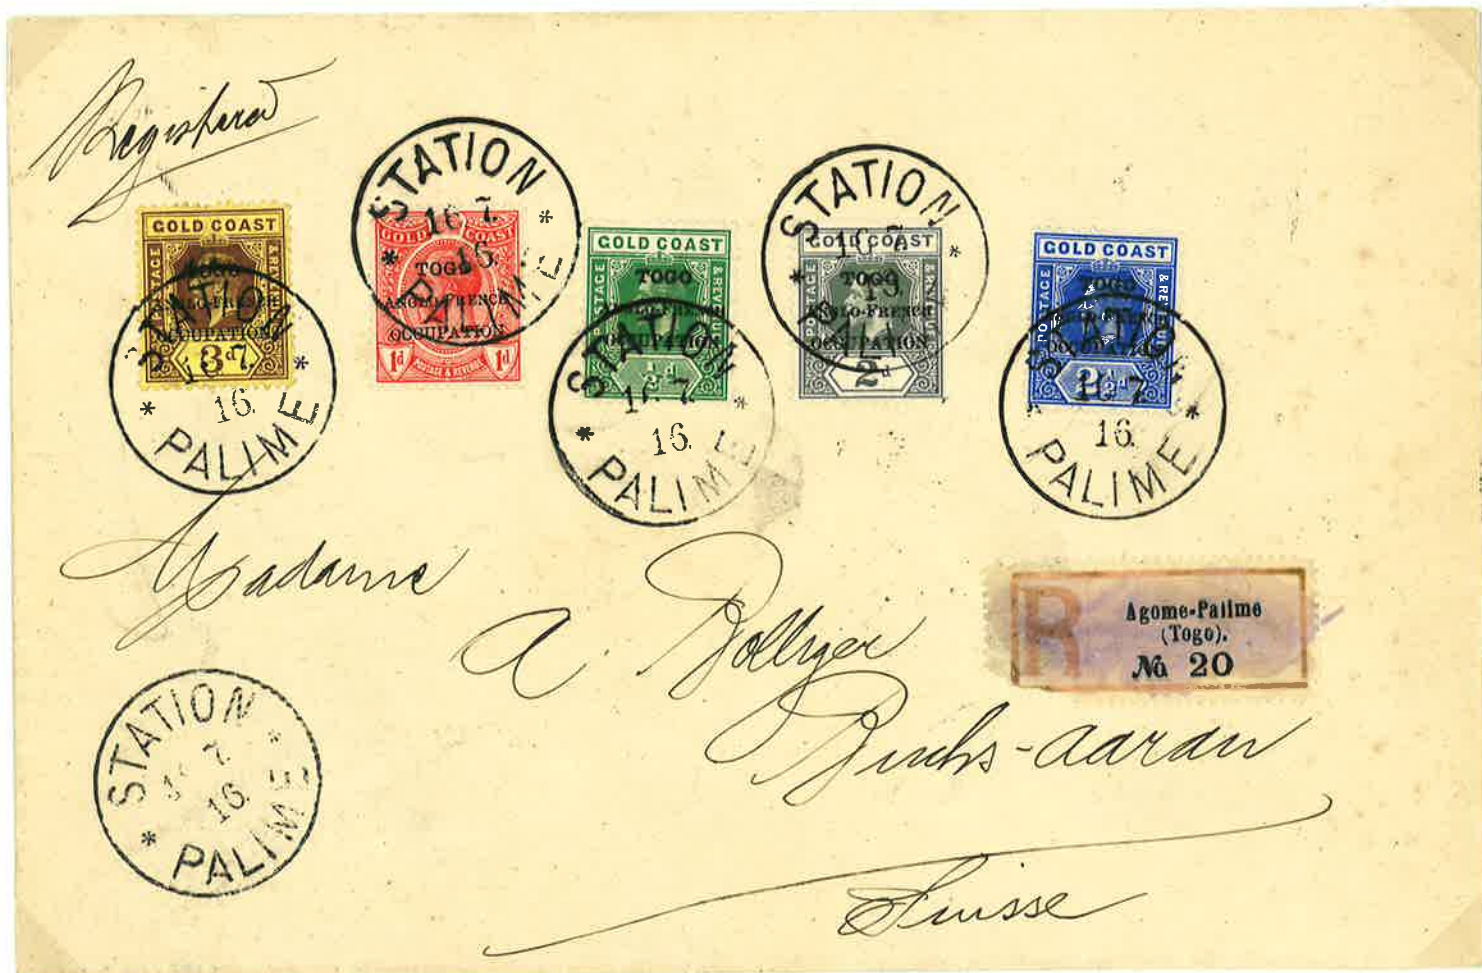 Registered
GOLD COAST
POSTAGE & REVENUE
TOGO
ANGLO-FRENCH
OCCUPATION
3d
STATION
7
16.
PALIME
GOLD COAST
TOGO
ANGLO-FRENCH
OCCUPATION
1d 1d
POSTAGE & REVENUE
STATION
16 7
16.
PALIME
GOLD COAST
POSTAGE & REVENUE
TOGO
ANGLO-FRENCH
OCCUPATION
½d
STATION
7
16.
PALIME
GOLD COAST
POSTAGE
TOGO
ANGLO-FRENCH
OCCUPATION
2d
STATION
16 7
PALIME
GOLD COAST
POSTAGE & REVENUE
TOGO
ANGLO-FRENCH
OCCUPATION
2½d
STATION
16 7
16.
PALIME
Madame
A. Bolliger
Buchs-Aarau
Suisse
R
Agome-Palime
(Togo).
№ 20
STATION
7.
16.
PALIME